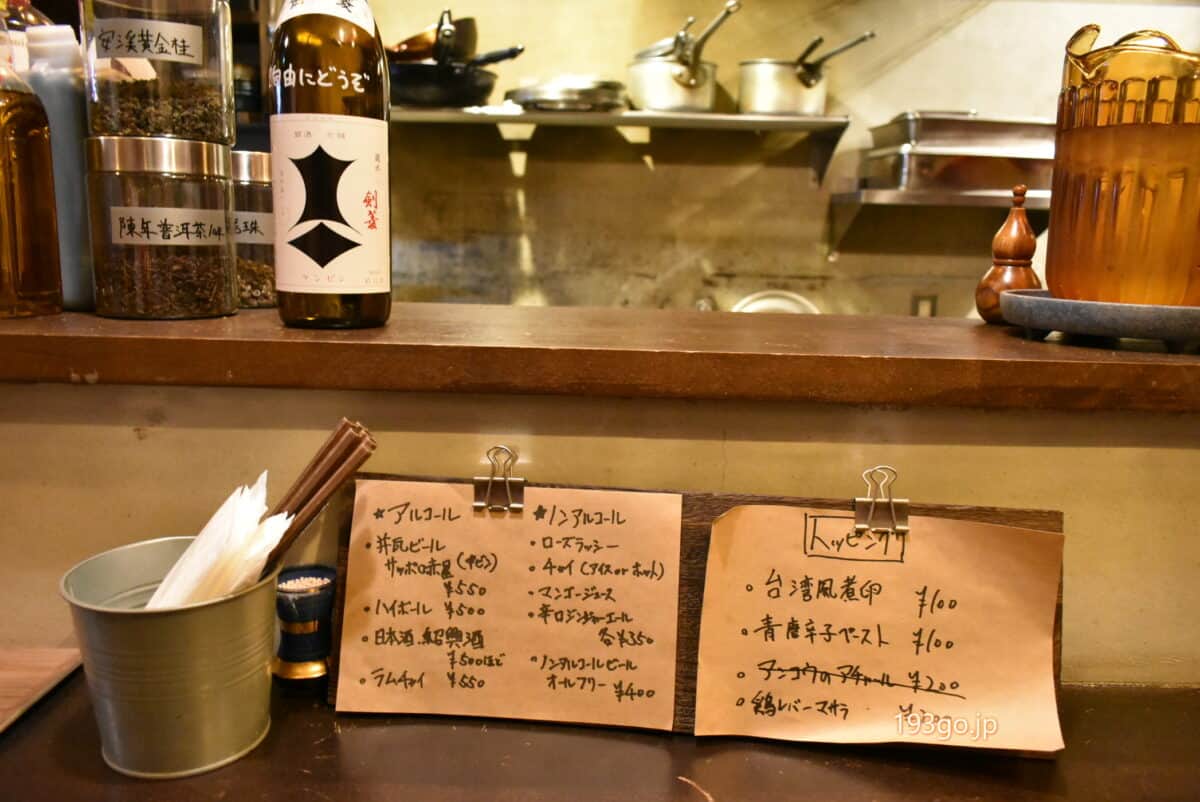 安渓黄金桂
陳年普洱茶
珠
自由にどうぞ
剣菱
★アルコール
・瓶ビール
サッポロ赤星(中ビン)
¥550
・ハイボール ¥500
・日本酒、紹興酒
¥500ほど
・ラムチャイ ¥550
★ノンアルコール
・ローズラッシー
・チャイ(アイス or ホット)
・マンゴージュース
・辛口ジンジャーエール
各¥350
・ノンアルコールビール
オールフリー ¥400
トッピング
・台湾風煮卵 ¥100
・青唐辛子ペースト ¥100
・アンコウのアチャール ¥200
・鶏レバーマサラ
193go.jp